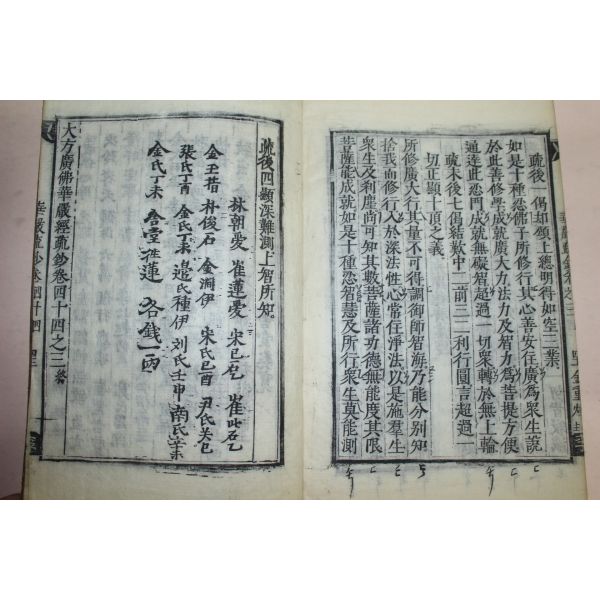 疏後一偈却顯上總明得如空三業
如是十種忍佛子所修行其心善安住廣為衆生說
於此善修學成就廣大力法力及智力為菩提方便
通達此忍門成就無礙智超過一切衆轉於無上輪
疏末後七偈結歎中二前三二利行圓言超過一
切正顯十頂之義
所修廣大行其量不可得調御師智海乃能分別知
捨我而修行入於深法性心常住淨法以是施羣生
衆生及刹塵尚可知其數菩薩諸功德無能度其限
菩薩能成就如是十種忍智慧及所行衆生莫能測
疏後四顯深難測上智所知
林朝愛 崔蓮愛 宋已乞 崔此石乙
金王㫺 朴俊石 金澗伊 宋氏己酉 尹氏
張氏丁酉 金氏丁未 邊氏種伊 刘氏壬申 南氏
金氏丁未 各錢一両
大方廣佛華嚴經疏鈔卷四十四之三